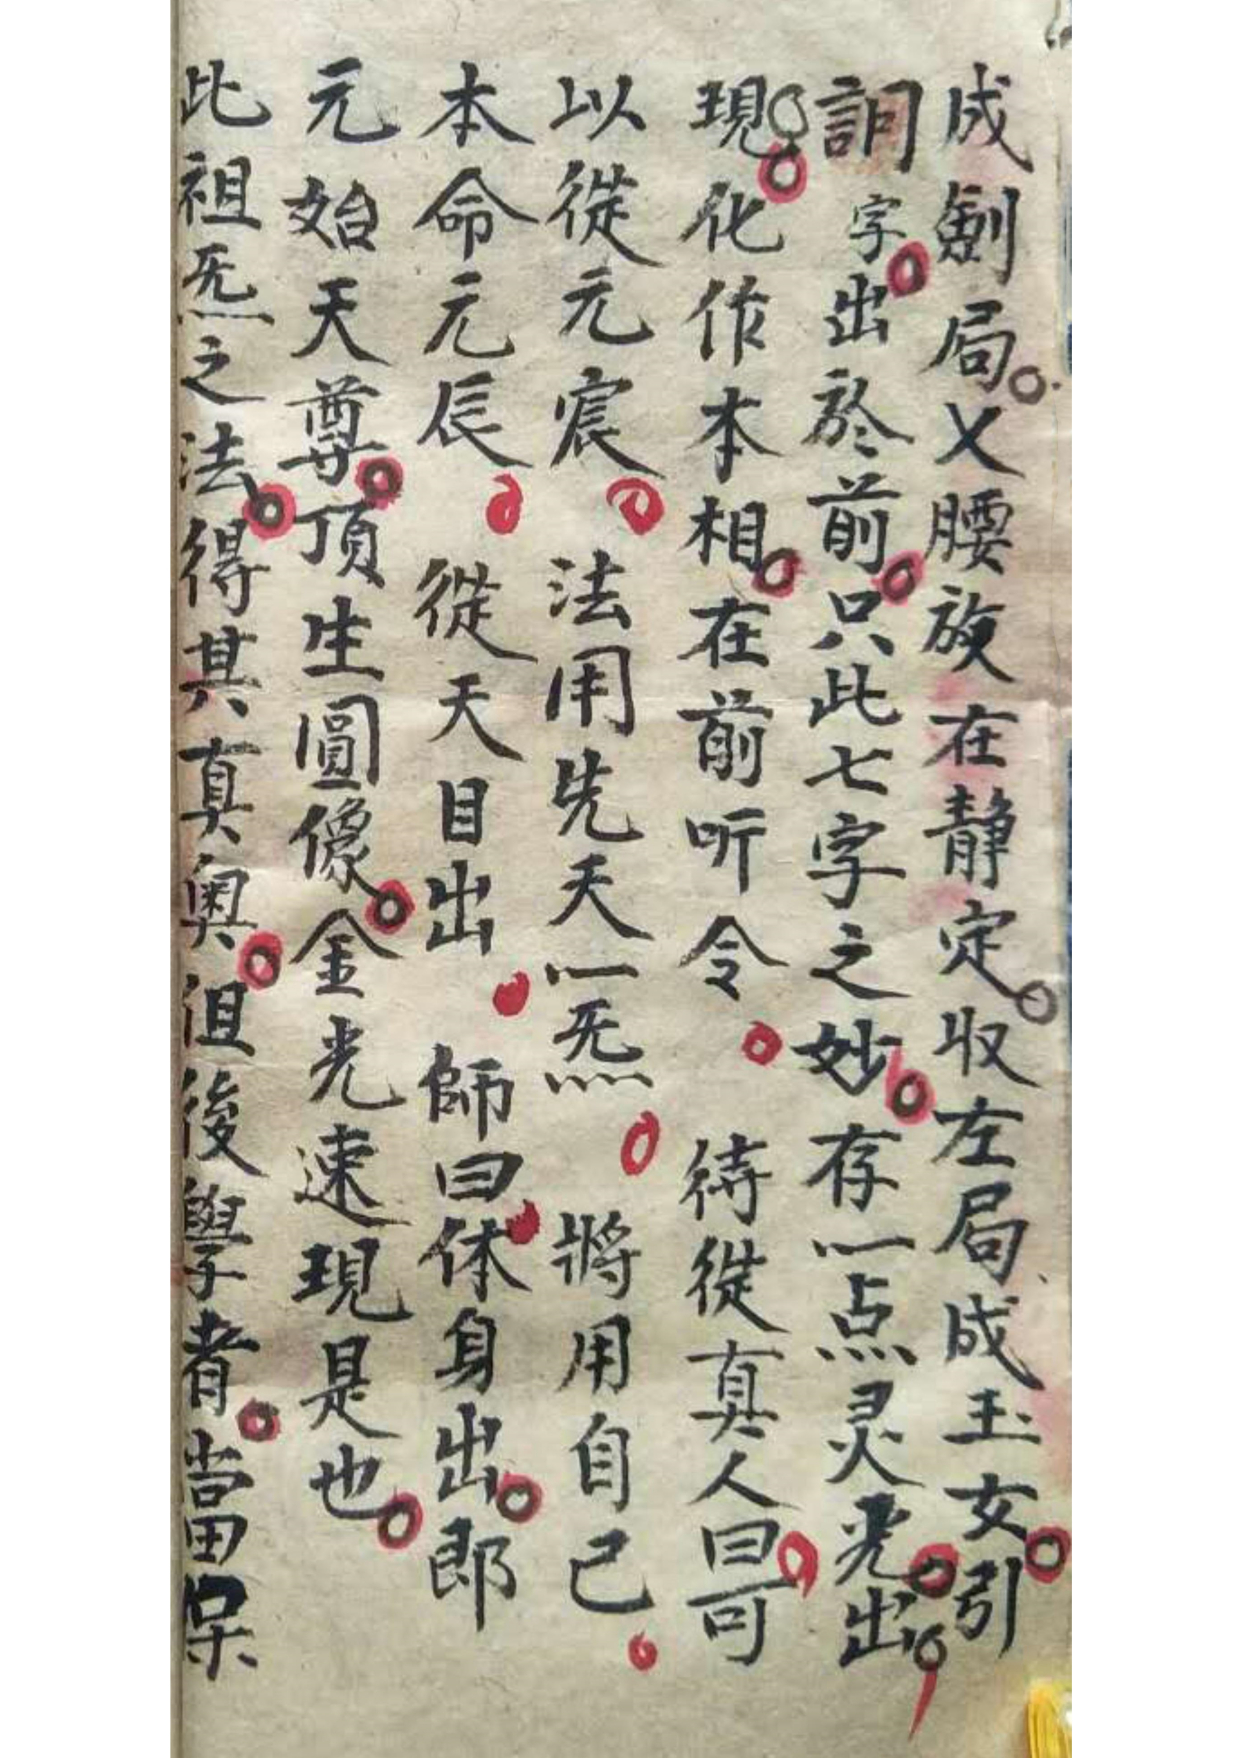 成劍局乂腰放在静定収左局成玉女引
詷字出於前只此七字之妙存一点灵光出
現化作本相在前听令待従真人曰可
以従元宸法用先天一炁將用自己
本命元辰従天目出師曰休身出郎
元始天尊頂生圓像金光速現是也
此祖炁之法得其真奥沮後學者當保